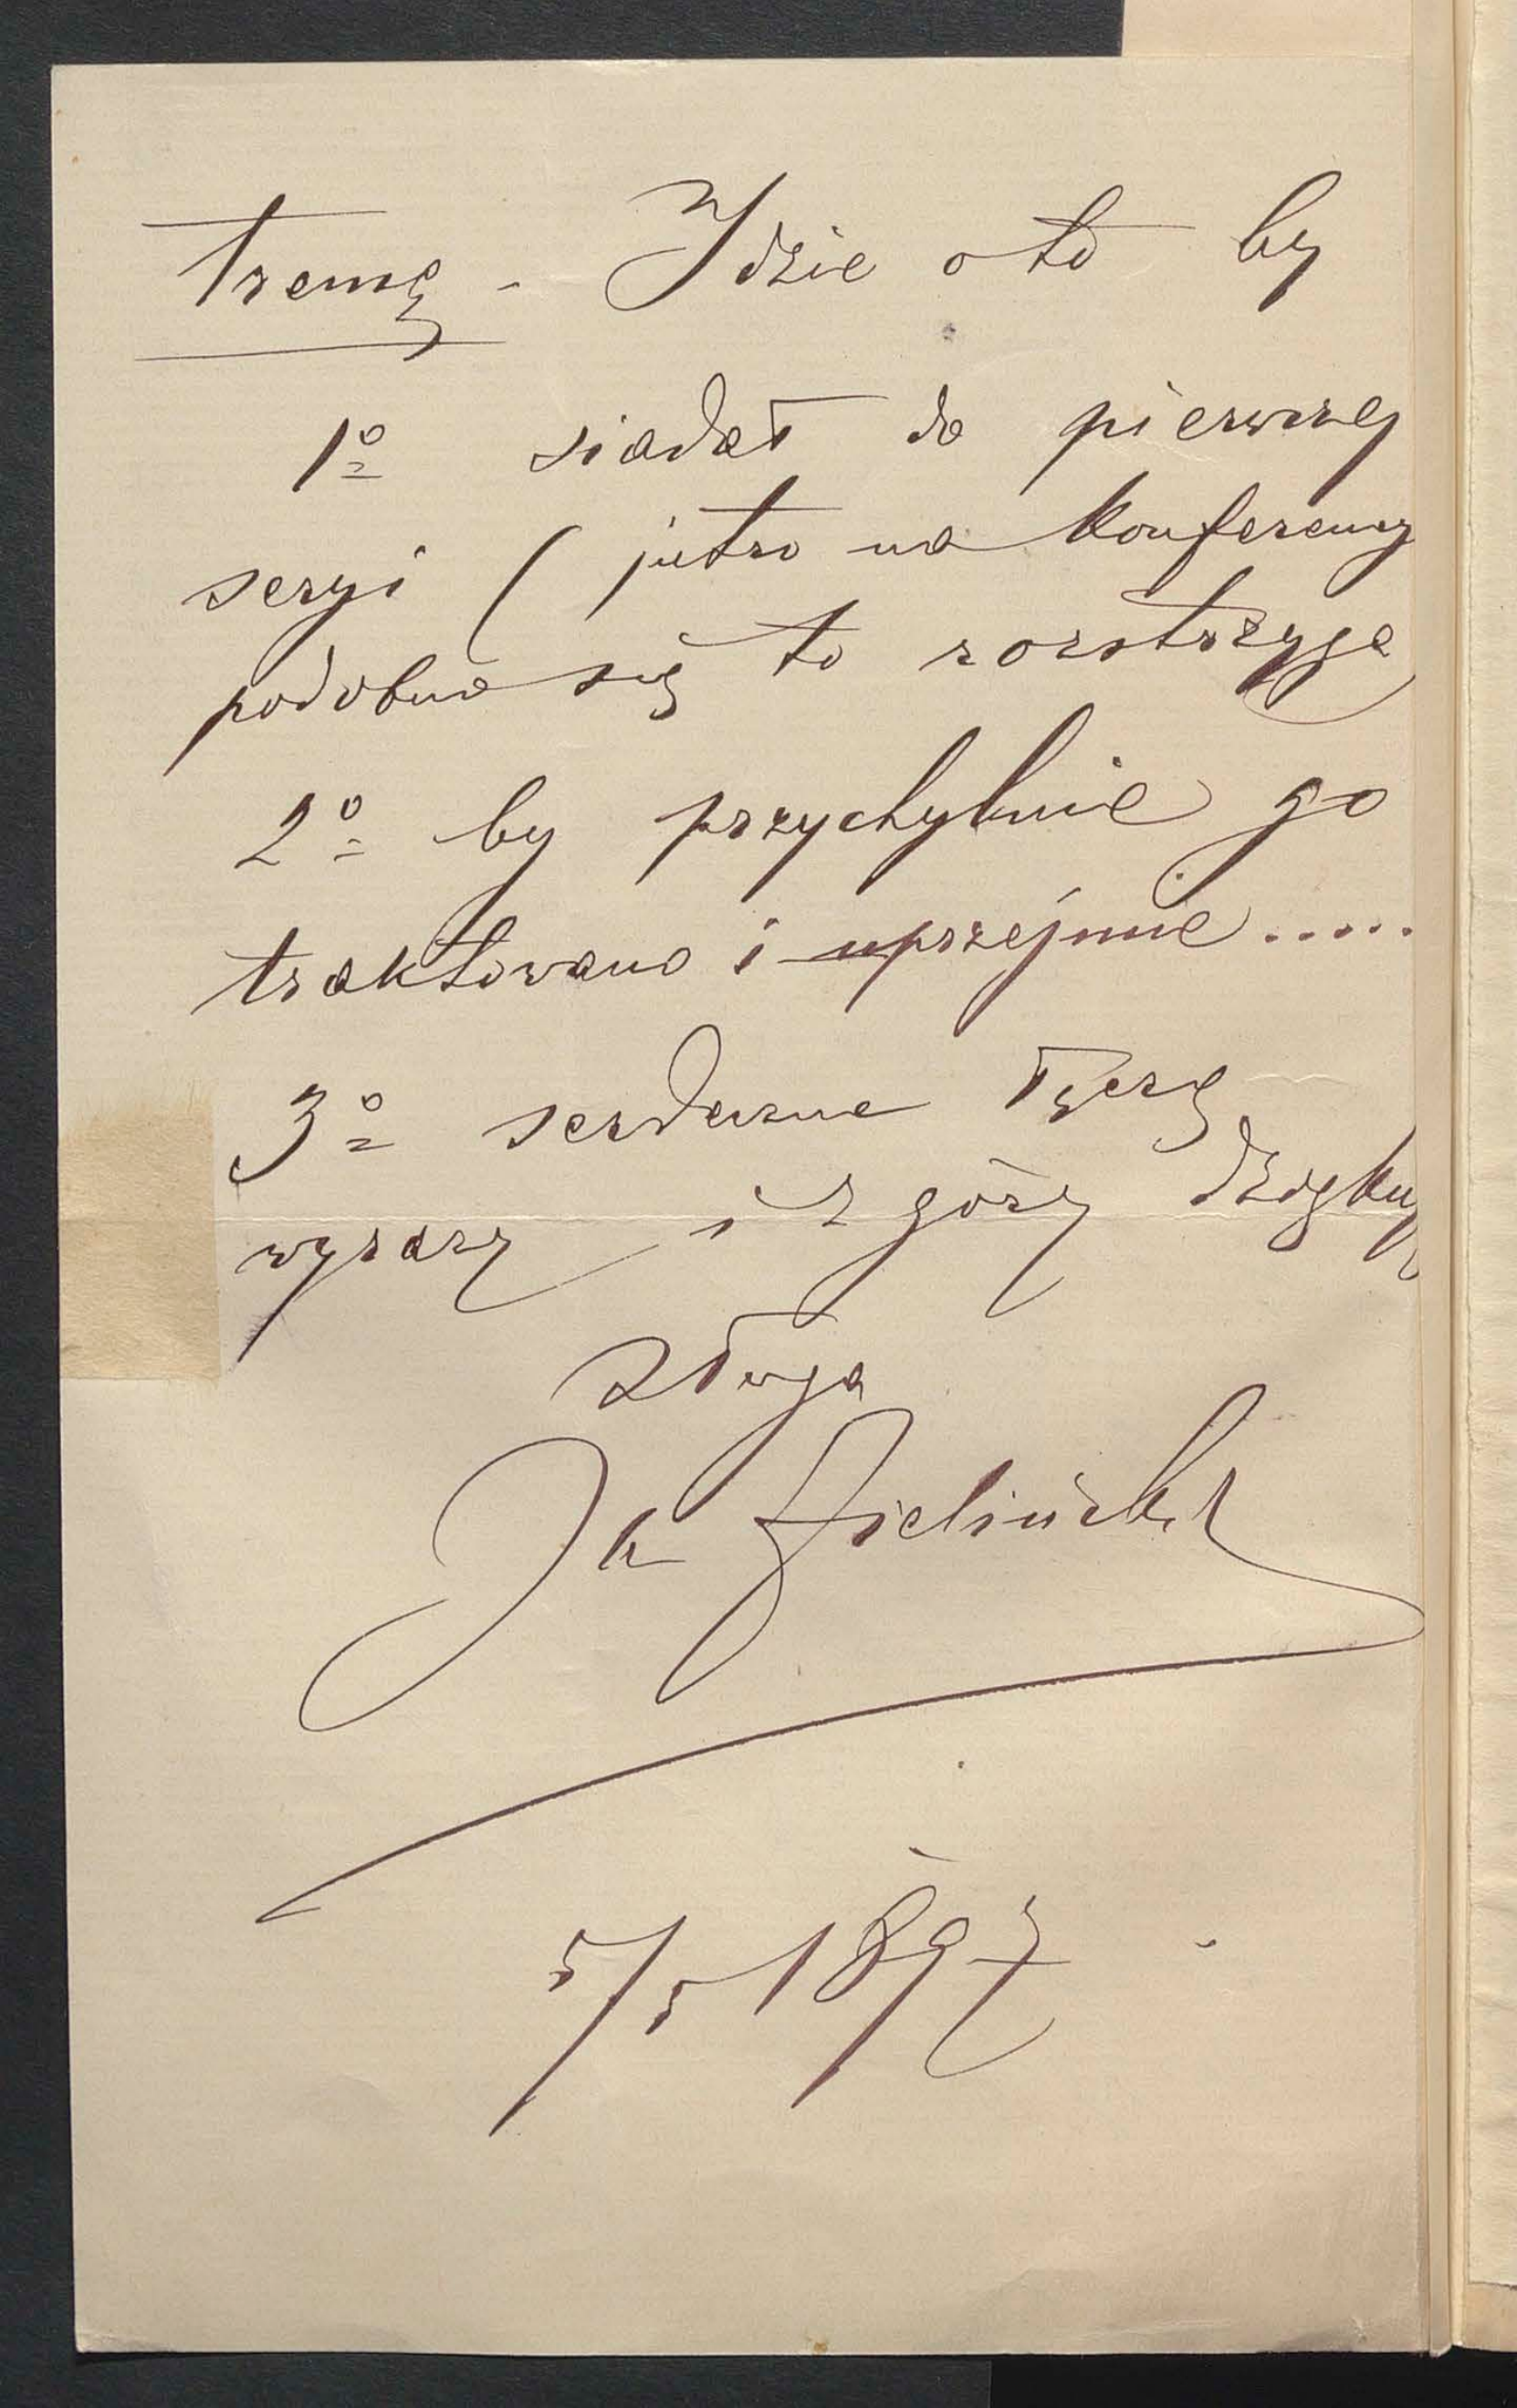 tremę - Idzie o to by
1º siadał do pierwszej
seryi ( jutro na konferency
podobno się to rozstrzyga
2º by przychylnie go
traktowano i uprzejmie.....
3º serdeczne łączę
wyrazy i z góry dziękuję
sługa
Zieliński
5/5 1897